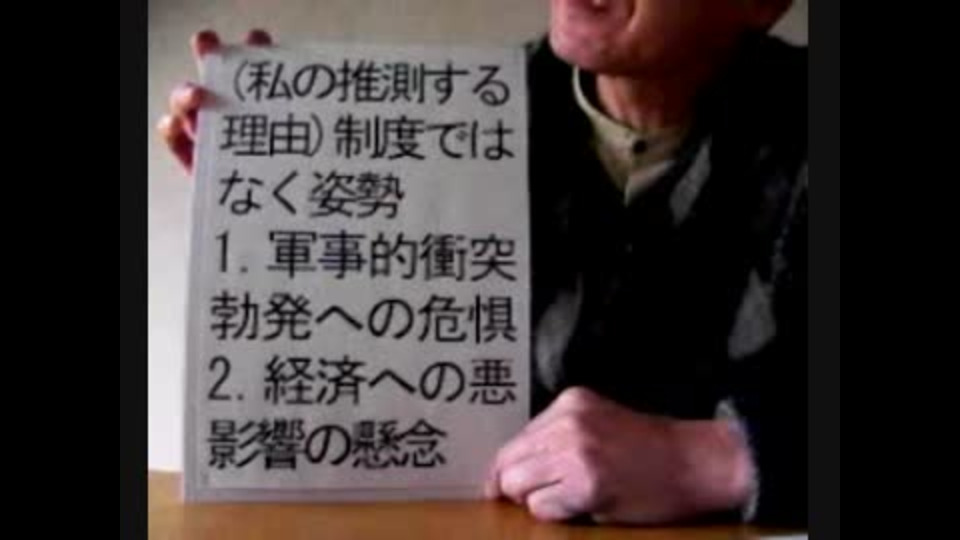 （私の推測する
理由）制度では
なく姿勢
1. 軍事的衝突
勃発への危惧
2. 経済への悪
影響の懸念